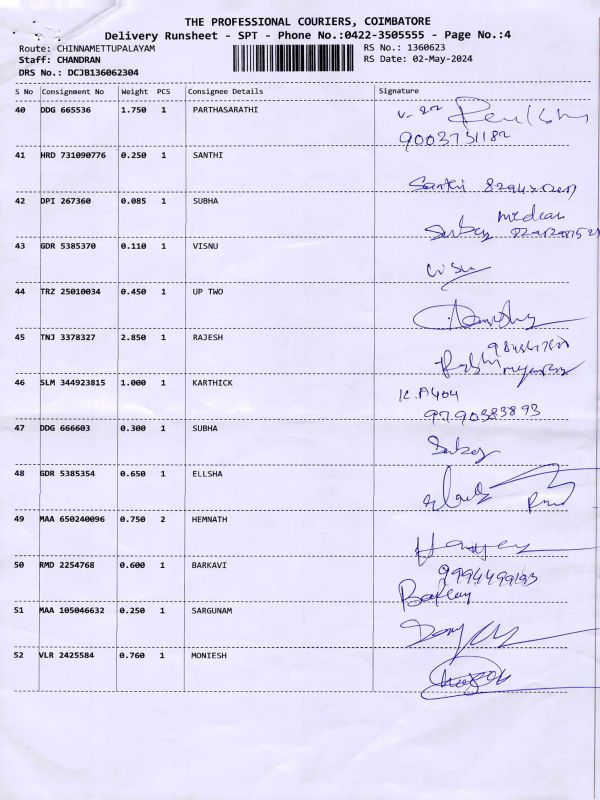 THE PROFESSIONAL COURIERS, COIMBATORE
Delivery Runsheet - SPT - Phone No.:0422-3505555 - Page No.:4
Route: CHINNAMETTUPALAYAM RS No.: 1360623
Staff: CHANDRAN RS Date: 02-May-2024
DRS No.: DCJB136062304
S No Consignment No Weight PCS Consignee Details Signature
40 DDG 665536 1.750 1 PARTHASARATHI
9003731182
41 HRD 731090776 0.250 1 SANTHI
Santhi
42 DPI 267360 0.085 1 SUBHA
43 GDR 5385370 0.110 1 VISNU
44 TRZ 25010034 0.450 1 UP TWO
45 TNJ 3378327 2.850 1 RAJESH
46 SLM 344923815 1.000 1 KARTHICK
K.A404
9790383893
47 DDG 666603 0.300 1 SUBHA
48 GDR 5385354 0.650 1 ELLSHA
49 MAA 650240096 0.750 2 HEMNATH
50 RMD 2254768 0.600 1 BARKAVI
9994499193
51 MAA 105046632 0.250 1 SARGUNAM
52 VLR 2425584 0.760 1 MONIESH